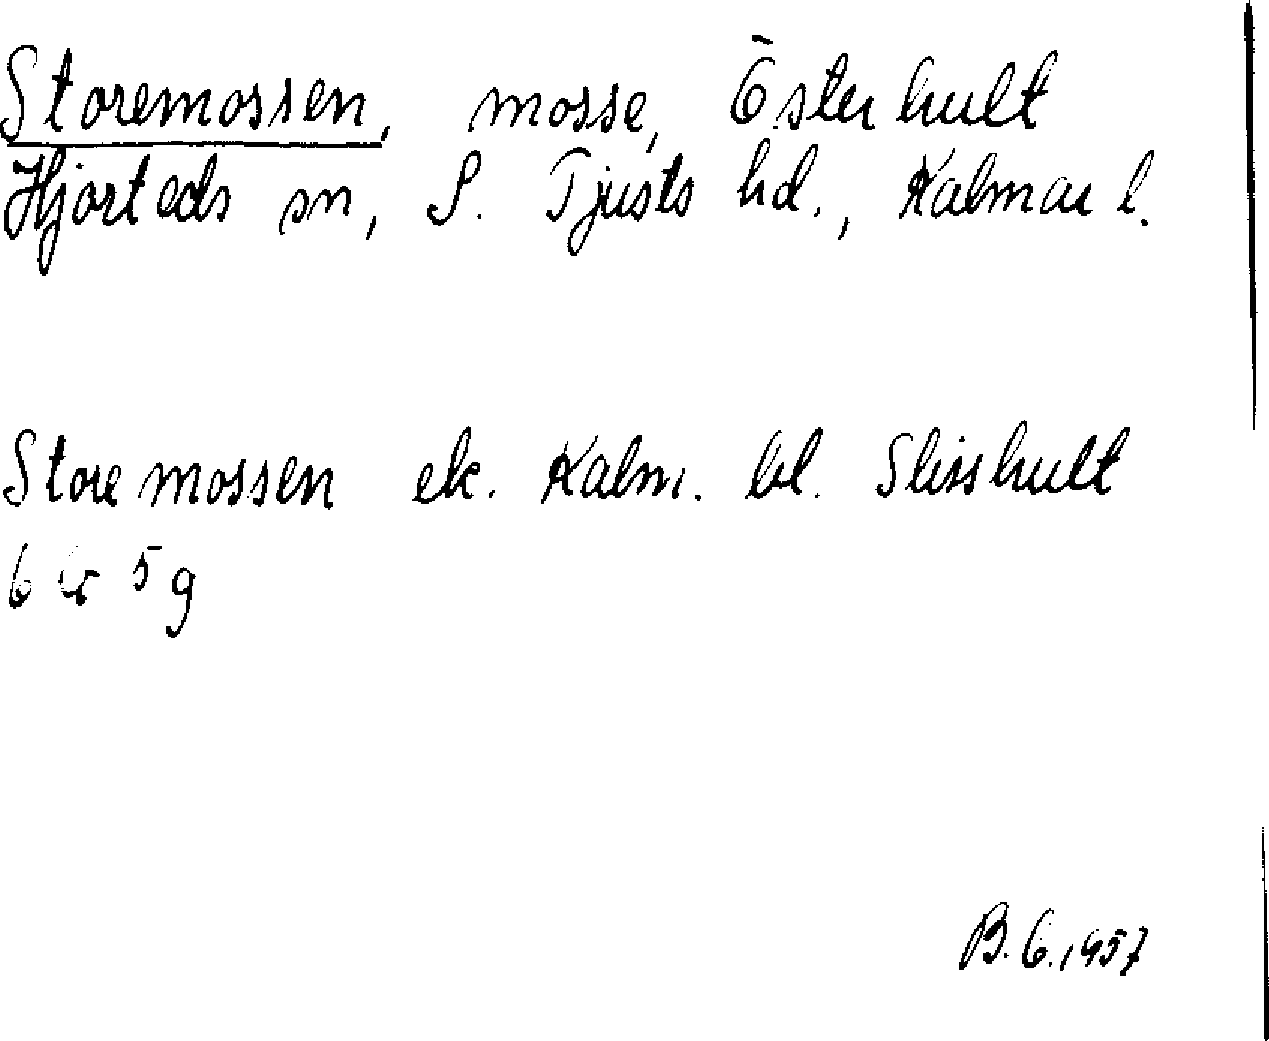 Storemossen, mosse, Österhult
Hjorteds sn, S. Tjusts hd., Kalmar l.
Storemossen ek. Kalm. bl. Slisshult
6 5 g
B. G. 1957